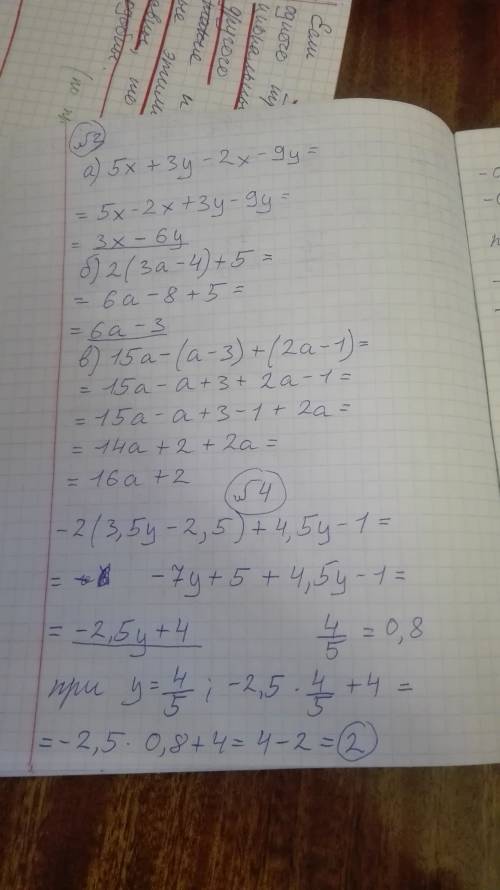 Если
другого
№2
а) 5x + 3y - 2x - 9y =
= 5x - 2x + 3y - 9y =
= 3x - 6y
б) 2(3a - 4) + 5 =
= 6a - 8 + 5 =
= 6a - 3
в) 15a - (a - 3) + (2a - 1) =
= 15a - a + 3 + 2a - 1 =
= 15a - a + 3 - 1 + 2a =
= 14a + 2 + 2a =
= 16a + 2
№4
-2(3,5y - 2,5) + 4,5y - 1 =
= -7y + 5 + 4,5y - 1 =
= -2,5y + 4 4/5 = 0,8
при y = 4/5 ; -2,5 · 4/5 + 4 =
= -2,5 · 0,8 + 4 = 4 - 2 = 2